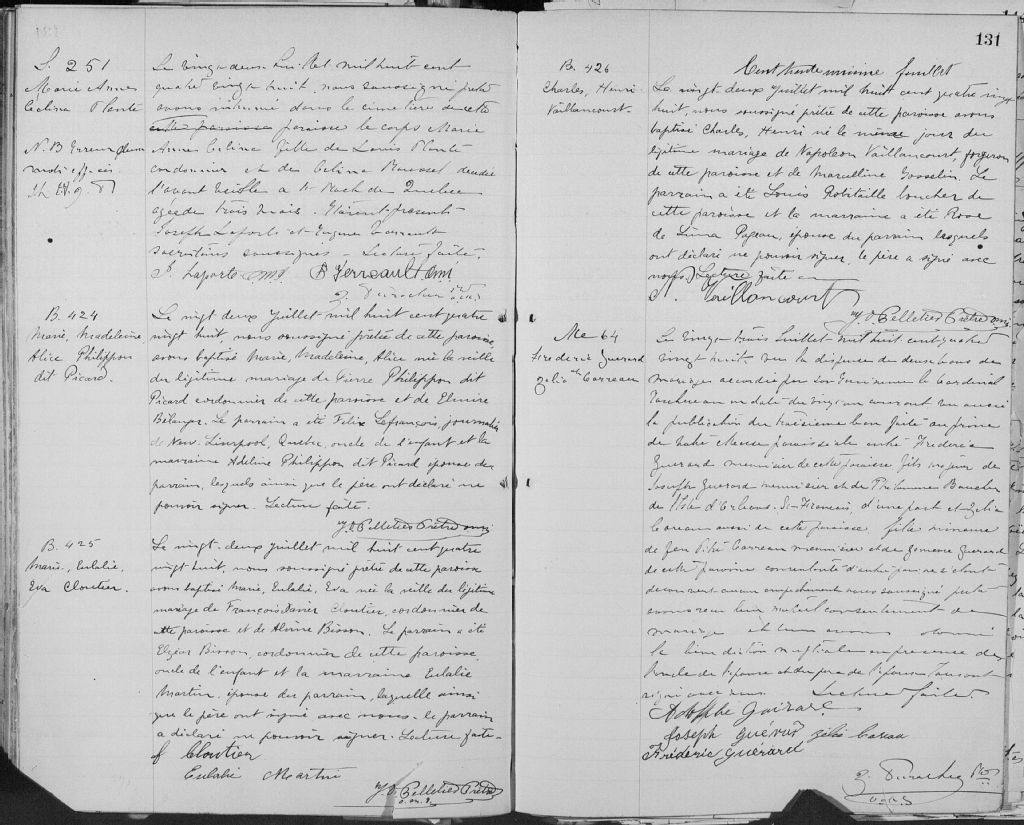 S. 251
Marie Anne
Celina Plante
N.B. Erreur d'un
mot
Le vingt-deux Juillet mil huit cent
quatre vingt huit, nous soussigné prêtre
avons inhumé dans le cimetière de cette
paroisse le corps Marie
Anne Celina fille de Louis Plante
cordonnier et de Celina Rousset décédée
l'avant veille a St Roch de Quebec
agée de trois mois. Etaient présents
Joseph Laporte et Eugène
soussignés - Lecture faite.
J. Laporte omi B Perreault omi
B. 424
Marie, Madeleine
Alice Philippon
dit Picard.
Le vingt deux juillet mil huit cent quatre
vingt huit, nous soussigné prêtre de cette paroisse,
avons baptisé Marie, Madeleine, Alice née la veille
du légitime mariage de Pierre Philippon dit
Picard cordonnier de cette paroisse et de Elmire
Bélanger. Le parrain a été Felix Lefrançois, journalier
de New-Liverpool, Quebec, oncle de l'enfant et la
marraine Adeline Philippon dit Picard épouse du
parrain, lesquels ainsi que le père ont déclaré ne
pouvoir signer. Lecture faite.
J. O. Pelletier Prêtre omi
B. 425
Marie, Eulalie,
Eva Cloutier.
Le vingt-deux juillet mil huit cent quatre
vingt huit, nous soussigné prêtre de cette paroisse
avons baptisé Marie, Eulalie, Eva née la veille du légitime
mariage de François Xavier Cloutier, cordonnier de
cette paroisse et de Alvine Bisson. Le parrain a été
Elzéar Bisson, cordonnier de cette paroisse,
oncle de l'enfant et la marraine Eulalie
Martin, épouse du parrain, laquelle ainsi
que le père ont signé avec nous. le parrain
a déclaré ne pouvoir signer. Lecture faite.
Cloutier
Eulalie Martin
J. O. Pelletier Prêtre
o.m.i.
131
Cent trente unième feuillet
B. 426
Charles, Henri
Vaillancourt.
Le vingt deux juillet mil huit cent quatre vingt
huit, nous soussigné prêtre de cette paroisse avons
baptisé Charles, Henri né le même jour du
légitime mariage de Napoléon Vaillancourt, forgeron
de cette paroisse et de Marcelline Gosselin. Le
parrain a été Louis Robitaille boucher de
cette paroisse et la marraine a été Rose
de Lima Pageau, épouse du parrain lesquels
ont déclaré ne pouvoir signer, le père a signé avec
nous. Lecture faite
N. Vaillancourt
J. O. Pelletier Prêtre omi
Me 64
Frederic Guerard
& Zelia Carreau
Le vingt trois Juillet mil huit cent quatre
vingt huit. vu la dispense de deux bans de
mariage accordée par Son Eminence le Cardinal
Taschereau en date du vingt un courant vu aussi
la publication du troisième ban faite au prône
de notre Messe paroissiale entre Frederic
Guerard menuisier de cette paroisse fils majeur de
Joseph Guerard menuisier et de Philomène Boucher
de l'Isle d'Orleans. St-François, d'une part et Zelia
Carreau aussi de cette paroisse fille mineure
de Jean Carreau menuisier et de Guerard
de cette paroisse d'autre part
decouvrant aucun empechement nous soussigné prêtre
avons recu leur mutuel consentement de
mariage et leur avons donné
la bénédiction nuptiale en presence de
l'oncle de l'épouse et du père de l'époux
signé avec nous. Lecture faite
Adolphe Guérard
Joseph Guérard Zélia Careau
Fréderic Guérard